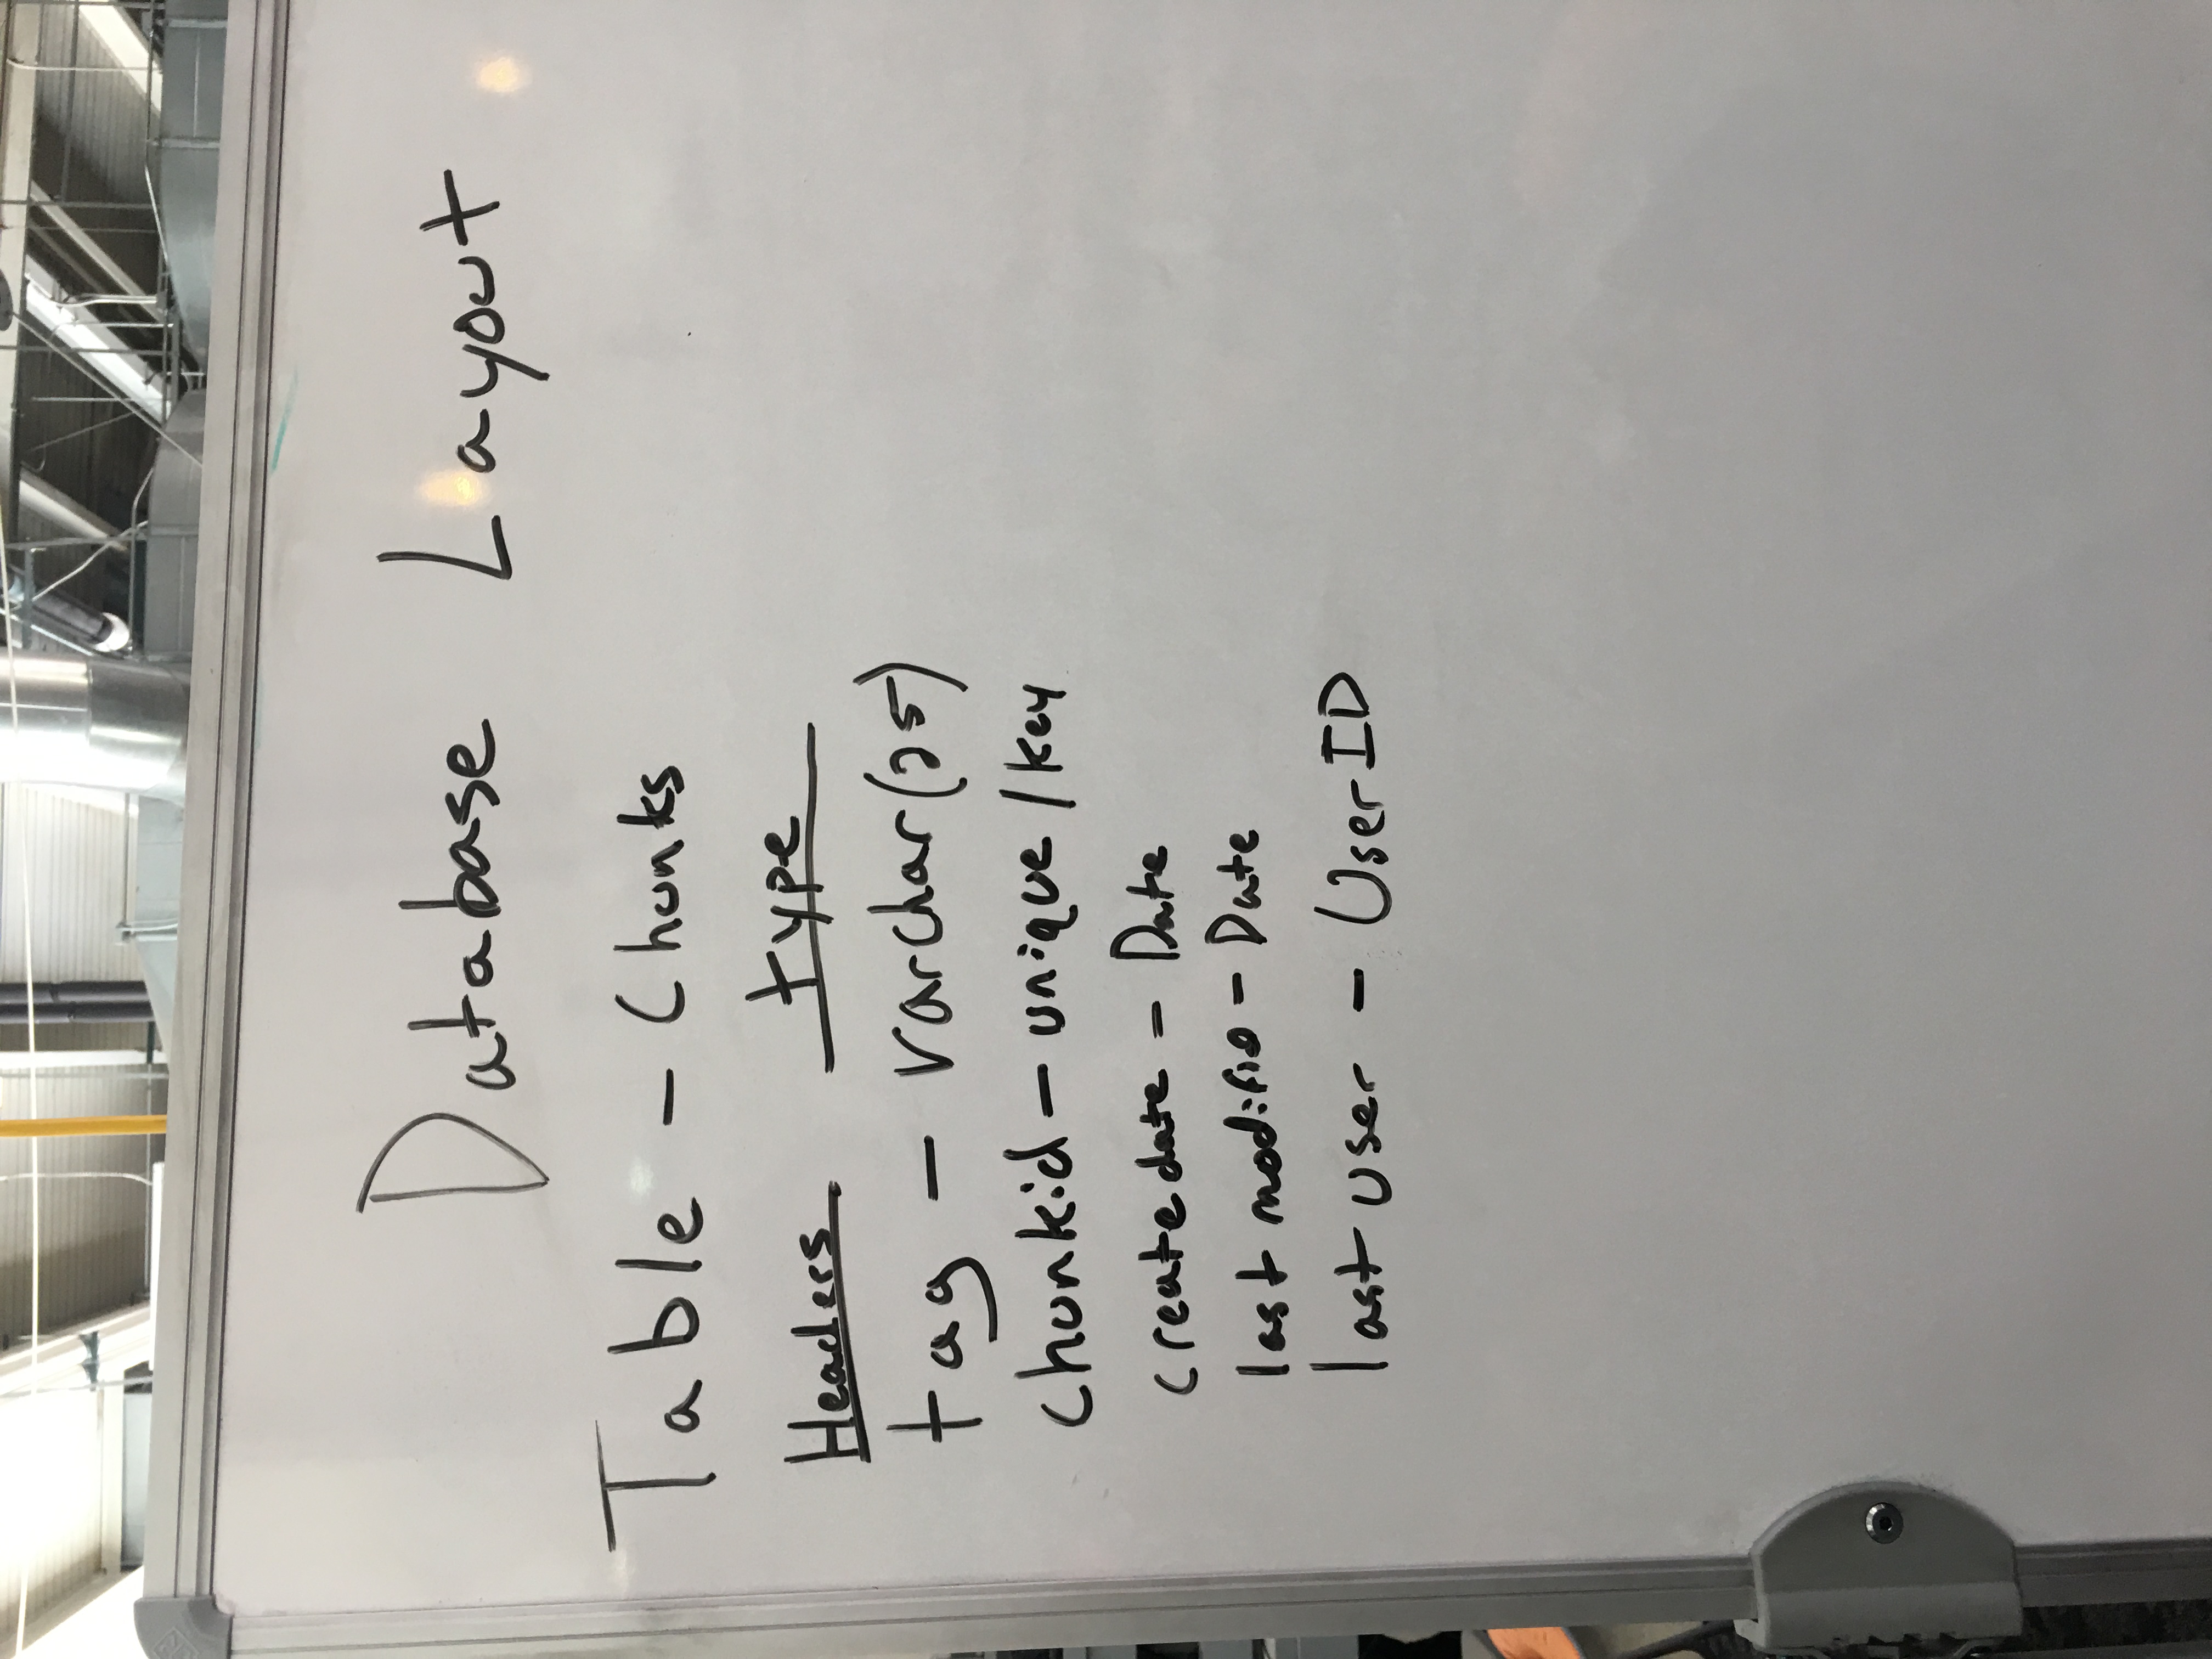 Database Layout
Table - Chunks
Headers type
tag - varchar(25)
chunkid - unique / key
createdate - Date
last modifid - Date
last user - UserID